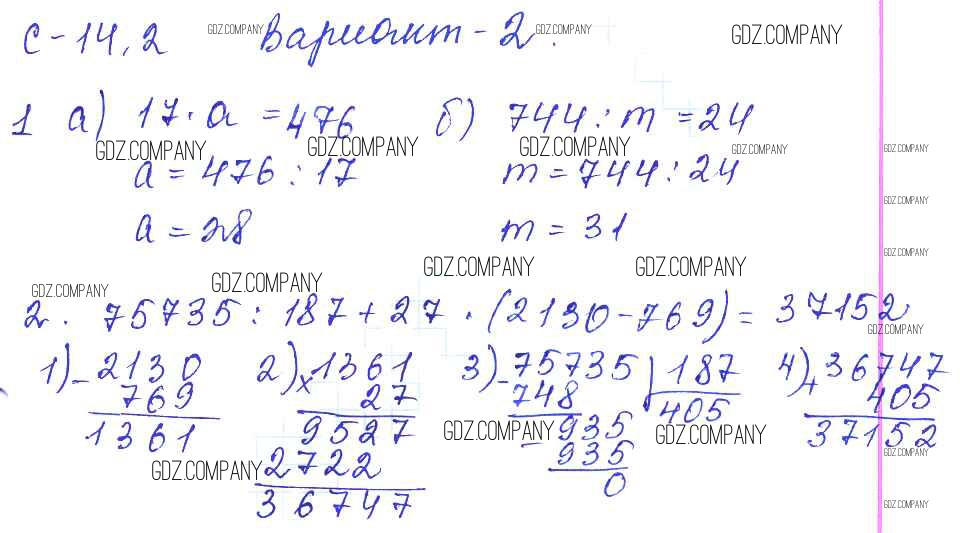 С-14,2 Вариант-2.
1 а) 17·а =476 б) 744:m =24
а = 476 : 17 m=744:24
а = 28 m = 31
2. 75735 : 187 + 27 · (2130-769) = 37152
1) - 2130 2) x 1361 3) - 75735 | 187 4) + 36747
769 27 748 405 405
1361 9527 - 935 37152
2722 935
36747 0
GDZ.COMPANY GDZ.COMPANY GDZ.COMPANY
GDZ.COMPANY GDZ.COMPANY GDZ.COMPANY GDZ.COMPANY GDZ.COMPANY
GDZ.COMPANY
GDZ.COMPANY
GDZ.COMPANY GDZ.COMPANY GDZ.COMPANY GDZ.COMPANY
GDZ.COMPANY
GDZ.COMPANY GDZ.COMPANY
GDZ.COMPANY GDZ.COMPANY
GDZ.COMPANY